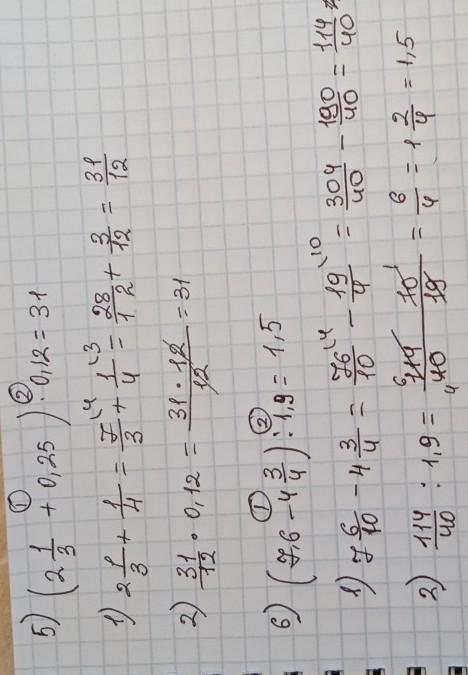 5) (2 1/3 + 0,25) · 0,12 = 31
① ②
1) 2 1/3 + 1/4 = 7/3 \4 + 1/4 \3 = 28/12 + 3/12 = 31/12
2) 31/12 · 0,12 = 31 · 12/12 = 31
6) (7,6 - 4 3/4) : 1,9 = 1,5
① ②
1) 7 6/10 - 4 3/4 = 76/10 \4 - 19/4 \10 = 304/40 - 190/40 = 114/40
2) 114/40 : 1,9 = 114/40 10/19 = 6/4 = 1 2/4 = 1,5
6 1
4